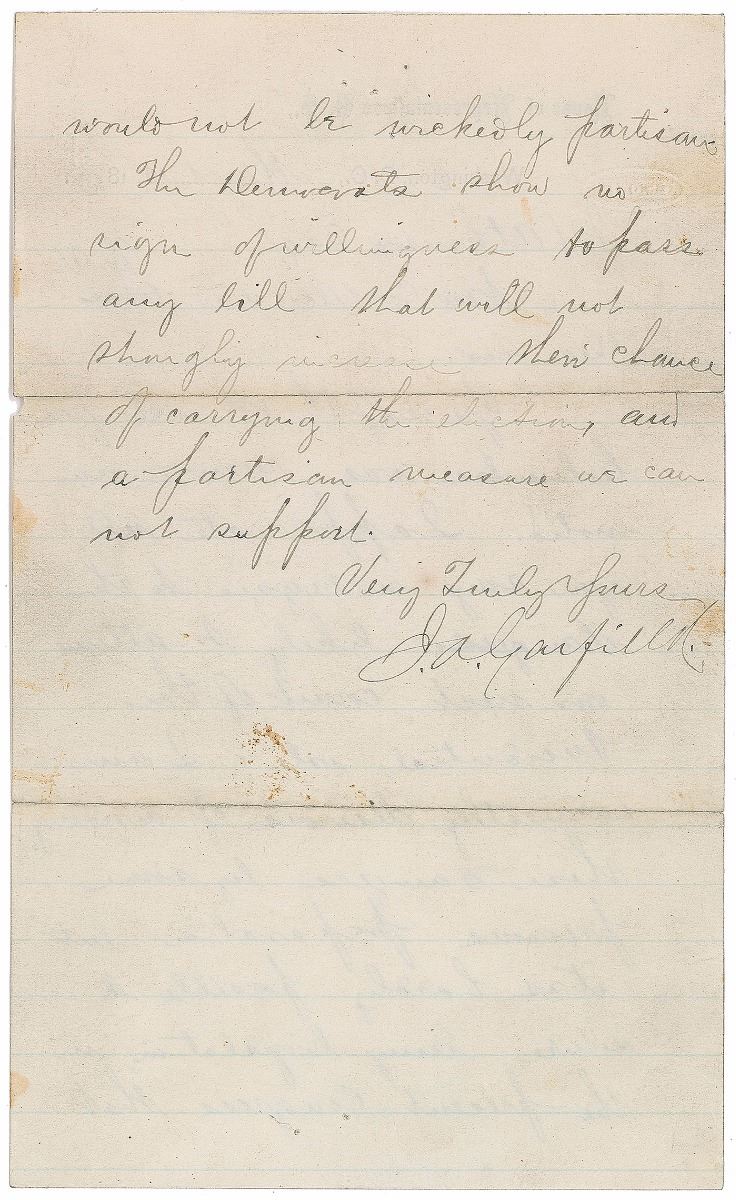 would not be wickedly partisan
The Democrats show no
sign of willingness to pass
any bill that will not
strongly increase their chance
of carrying the election, and
a partisan measure we can
not support.
Very Truly Yours
J. A. Garfield.